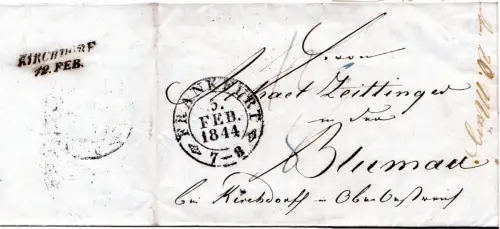 KIRCHDORF
12. FEB.
FRANKFURT
5.
FEB.
1844
7-8
Herrn
Zeittinger
in der
Blumau
bei Kirchdorf in Oberöstreich